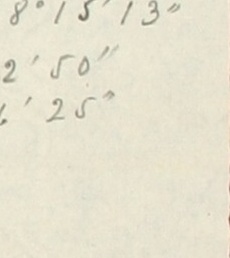 8° 15' 13"
2' 50"
' 25"